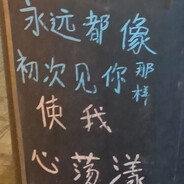 永远都像
初次见你那样
使我
心荡漾